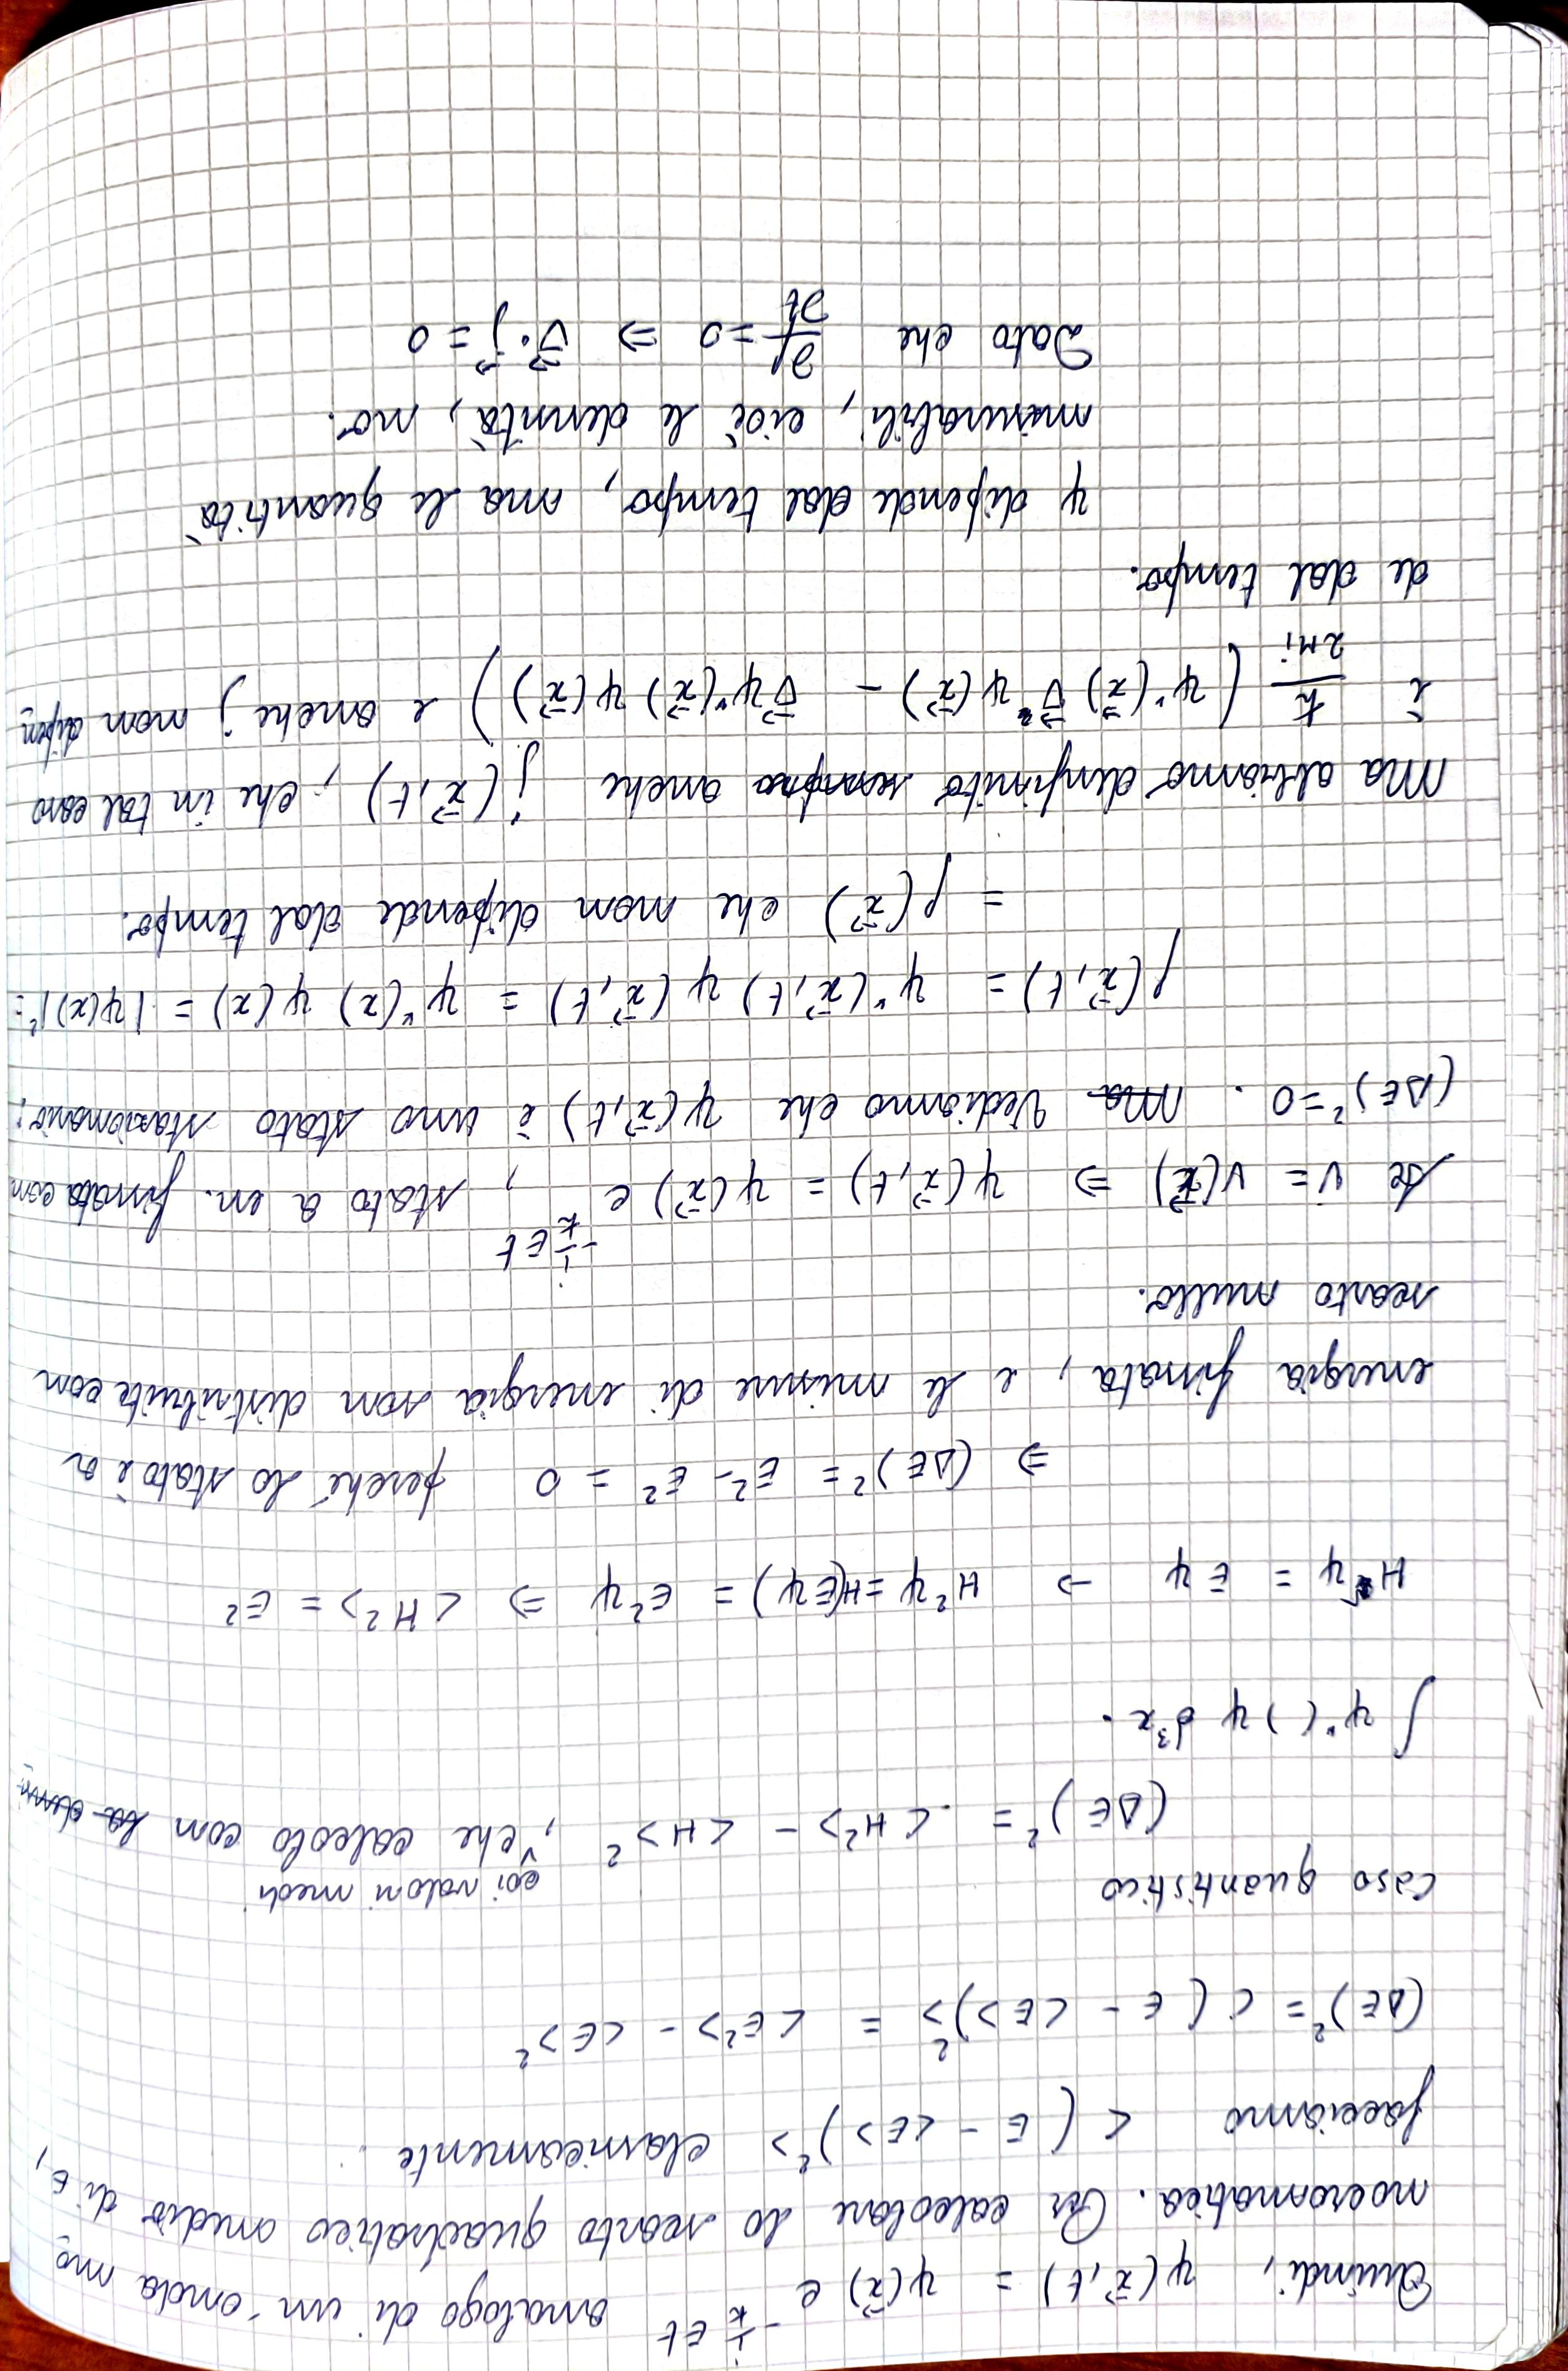 Quindi, ψ(x⃗,t) = ψ(x⃗) e^{-i/ħ Et} analogo di un'onda mo
nocromatica. Per calcolare lo scarto quadratico medio di E,
facciamo <(E - <E>)²> classicamente
(ΔE)² = <(E - <E>)²> = <E²> - <E>²
Caso quantistico
coi valori medi
(ΔE)² = <H²> - <H>², che calcolo con
∫ ψ*( ) ψ d³x.
Hψ = Eψ → H²ψ = H(Eψ) = E²ψ ⇒ <H²> = E²
⇒ (ΔE)² = E² - E² = 0 perché lo stato è a
energia fissata, e le misure di energia son distribuite con
scarto nullo.
Se V = V(x⃗) ⇒ ψ(x⃗,t) = ψ(x⃗) e^{-i/ħ Et}, stato a en. fissata con
(ΔE)² = 0. Vediamo che ψ(x⃗,t) è uno stato stazionario:
ρ(x⃗,t) = ψ*(x⃗,t) ψ(x⃗,t) = ψ*(x) ψ(x) = |ψ(x)|² =
= ρ(x⃗) che non dipende dal tempo.
Ma abbiamo definito anche j(x⃗,t), che in tal caso
è ħ/2Mi (ψ*(x⃗) ∇⃗ψ(x⃗) - ∇⃗ψ*(x⃗) ψ(x⃗)) e anche j non dipen
de dal tempo.
ψ dipende dal tempo, ma le quantità
misurabili, cioè le densità, no.
Dato che ∂ρ/∂t = 0 ⇒ ∇⃗·j⃗ = 0